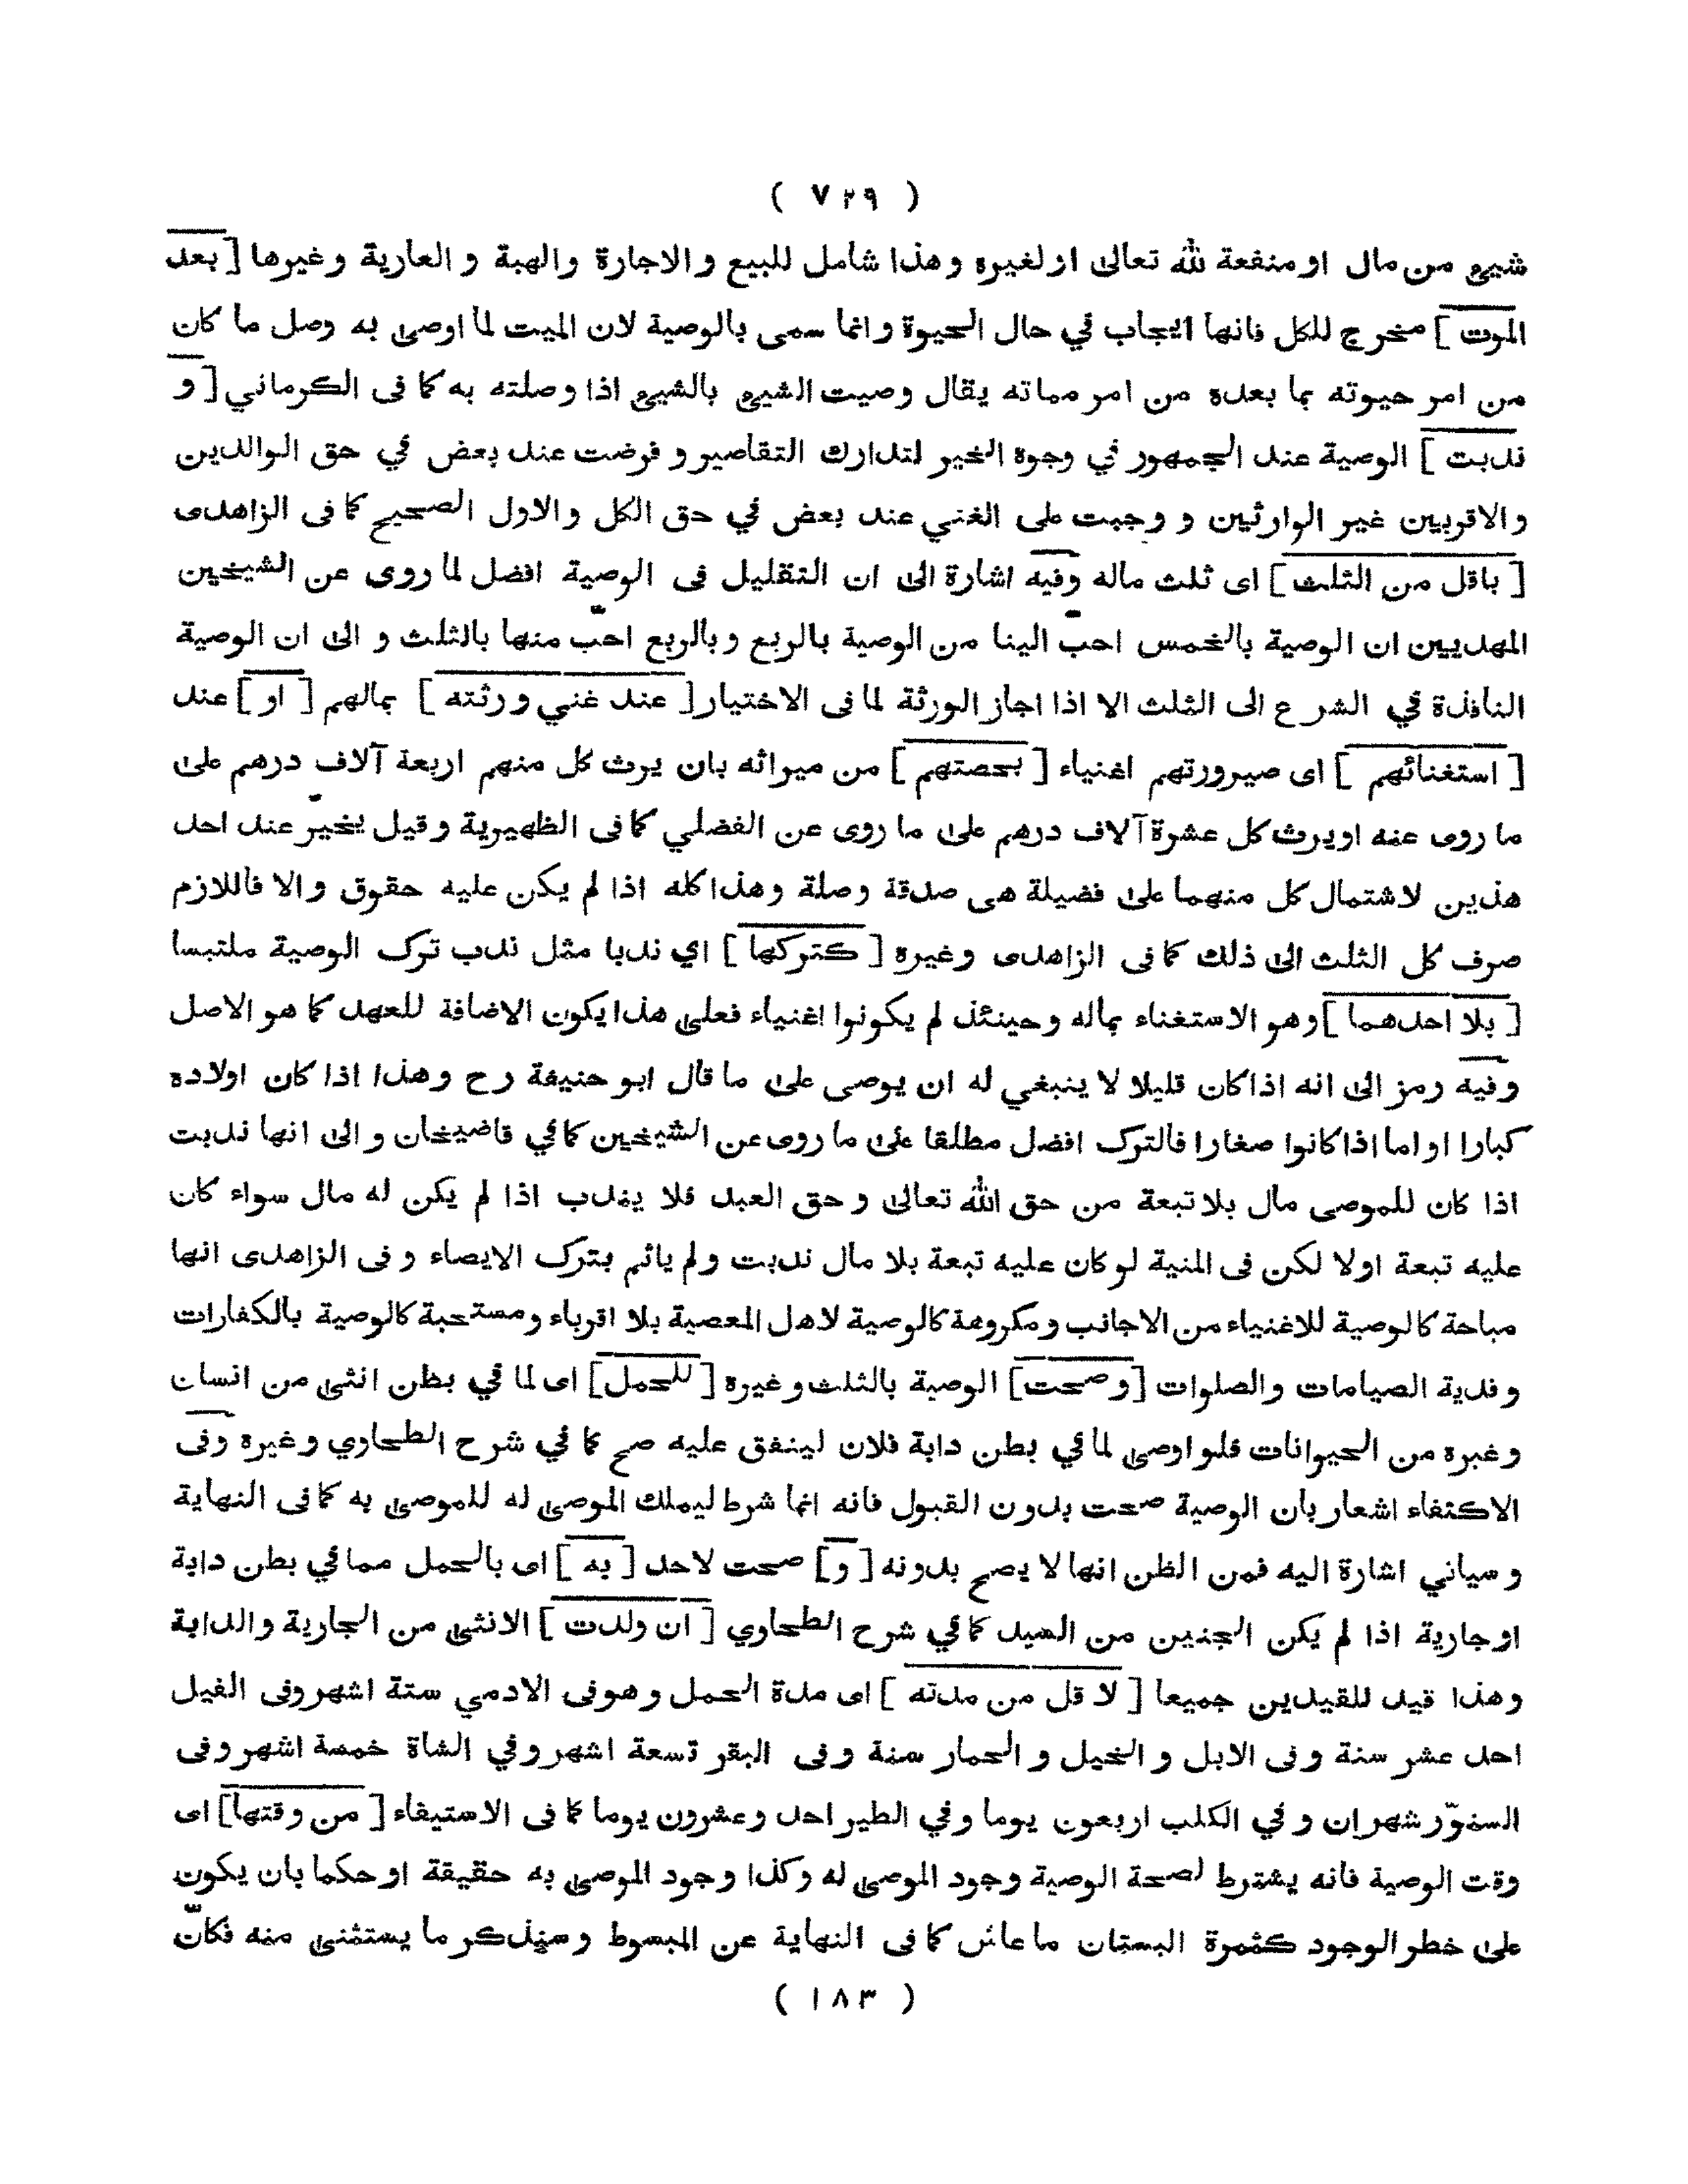 ( ٧٢٩ )
شيئ من مال او منفعة لله تعالى او لغيره وهذا شامل للبيع والاجارة والهبة و العارية وغيرها [ بعد
الموت ] مخرج للكل فانها ايجاب في حال الحيوة وانما سمى بالوصية لان الميت لما اوصى به وصل ما كان
من امر حيوته بما بعده من امر مماته يقال وصيت الشيئ بالشيئ اذا وصلته به كما فى الكرماني [ و
ندبت ] الوصية عند الجمهور في وجوه الخير لتدارك التقاصير و فرضت عند بعض في حق الوالدين
والاقربيين غير الوارثين و وجبت على الغني عند بعض في حق الكل والاول الصحيح كما فى الزاهدى
[ باقل من الثلث ] اى ثلث ماله وفيه اشارة الى ان التقليل فى الوصية افضل لما روى عن الشيخين
المهديين ان الوصية بالخمس احب الينا من الوصية بالربع وبالربع احبّ منها بالثلث و الى ان الوصية
النافذة في الشرع الى الثلث الا اذا اجاز الورثة لما فى الاختيار [ عند غني ورثته ] بمالهم [ او ] عند
[ استغنائهم ] اى صيرورتهم اغنياء [ بحصتهم ] من ميراثه بان يرث كل منهم اربعة آلاف درهم على
ما روى عنه اويرث كل عشرة آلاف درهم على ما روى عن الفضلي كما فى الظهيرية وقيل يخير عند احد
هذين لاشتمال كل منهما على فضيلة هى صدقة وصلة وهذا كله اذا لم يكن عليه حقوق والا فاللازم
صرف كل الثلث الى ذلك كما فى الزاهدى وغيره [ كتركها ] اي ندبا مثل ندب ترك الوصية ملتبسا
[ بلا احدهما ] وهو الاستغناء بماله وحينئذ لم يكونوا اغنياء فعلى هذا يكون الاضافة للعهد كما هو الاصل
وفيه رمز الى انه اذا كان قليلا لا ينبغي له ان يوصى على ما قال ابو حنيفة رح وهذا اذا كان اولاده
كبارا او اما اذا كانوا صغارا فالترك افضل مطلقا على ما روى عن الشيخين كما في قاضيخان و الى انها ندبت
اذا كان للموصى مال بلا تبعة من حق الله تعالى و حق العبد فلا يندب اذا لم يكن له مال سواء كان
عليه تبعة اولا لكن فى المنية لو كان عليه تبعة بلا مال ندبت ولم ياثم بترك الايصاء و فى الزاهدى انها
مباحة كالوصية للاغنياء من الاجانب ومكروهة كالوصية لاهل المعصية بلا اقرباء ومستحبة كالوصية بالكفارات
و فدية الصيامات والصلوات [ و صحت ] الوصية بالثلث وغيره [ للحمل ] اى لما في بطن انثى من انسان
وغيره من الحيوانات فلو اوصى لما في بطن دابة فلان لينفق عليه صح كما في شرح الطحاوي وغيره وفى
الاكتفاء اشعار بان الوصية صحت بدون القبول فانه انما شرط ليملك الموصى له للموصى به كما فى النهاية
و سياتي اشارة اليه فمن الظن انها لا يصح بدونه [ و ] صحت لاحد [ به ] اى بالحمل مما في بطن دابة
او جارية اذا لم يكن الجنين من السيد كما في شرح الطحاوي [ ان ولدت ] الانثى من الجارية والدابة
وهذا قيد للقيدين جميعا [ لا قل من مدته ] اى مدة الحمل وهو فى الادمي ستة اشهر وفى الفيل
احد عشر سنة و فى الابل و الخيل و الحمار سنة و فى البقر تسعة اشهر وفي الشاة خمسة اشهر وفى
السنوّر شهران و في الكلب اربعون يوما وفي الطير احد وعشرون يوما كما فى الاستيفاء [ من وقتها ] اى
وقت الوصية فانه يشترط لصحة الوصية وجود الموصى له وكذا وجود الموصى به حقيقة او حكما بان يكون
على خطر الوجود كثمرة البستان ما عاش كما فى النهاية عن المبسوط وسيذكر ما يستثنى منه فكانّ
( ١٨٣ )